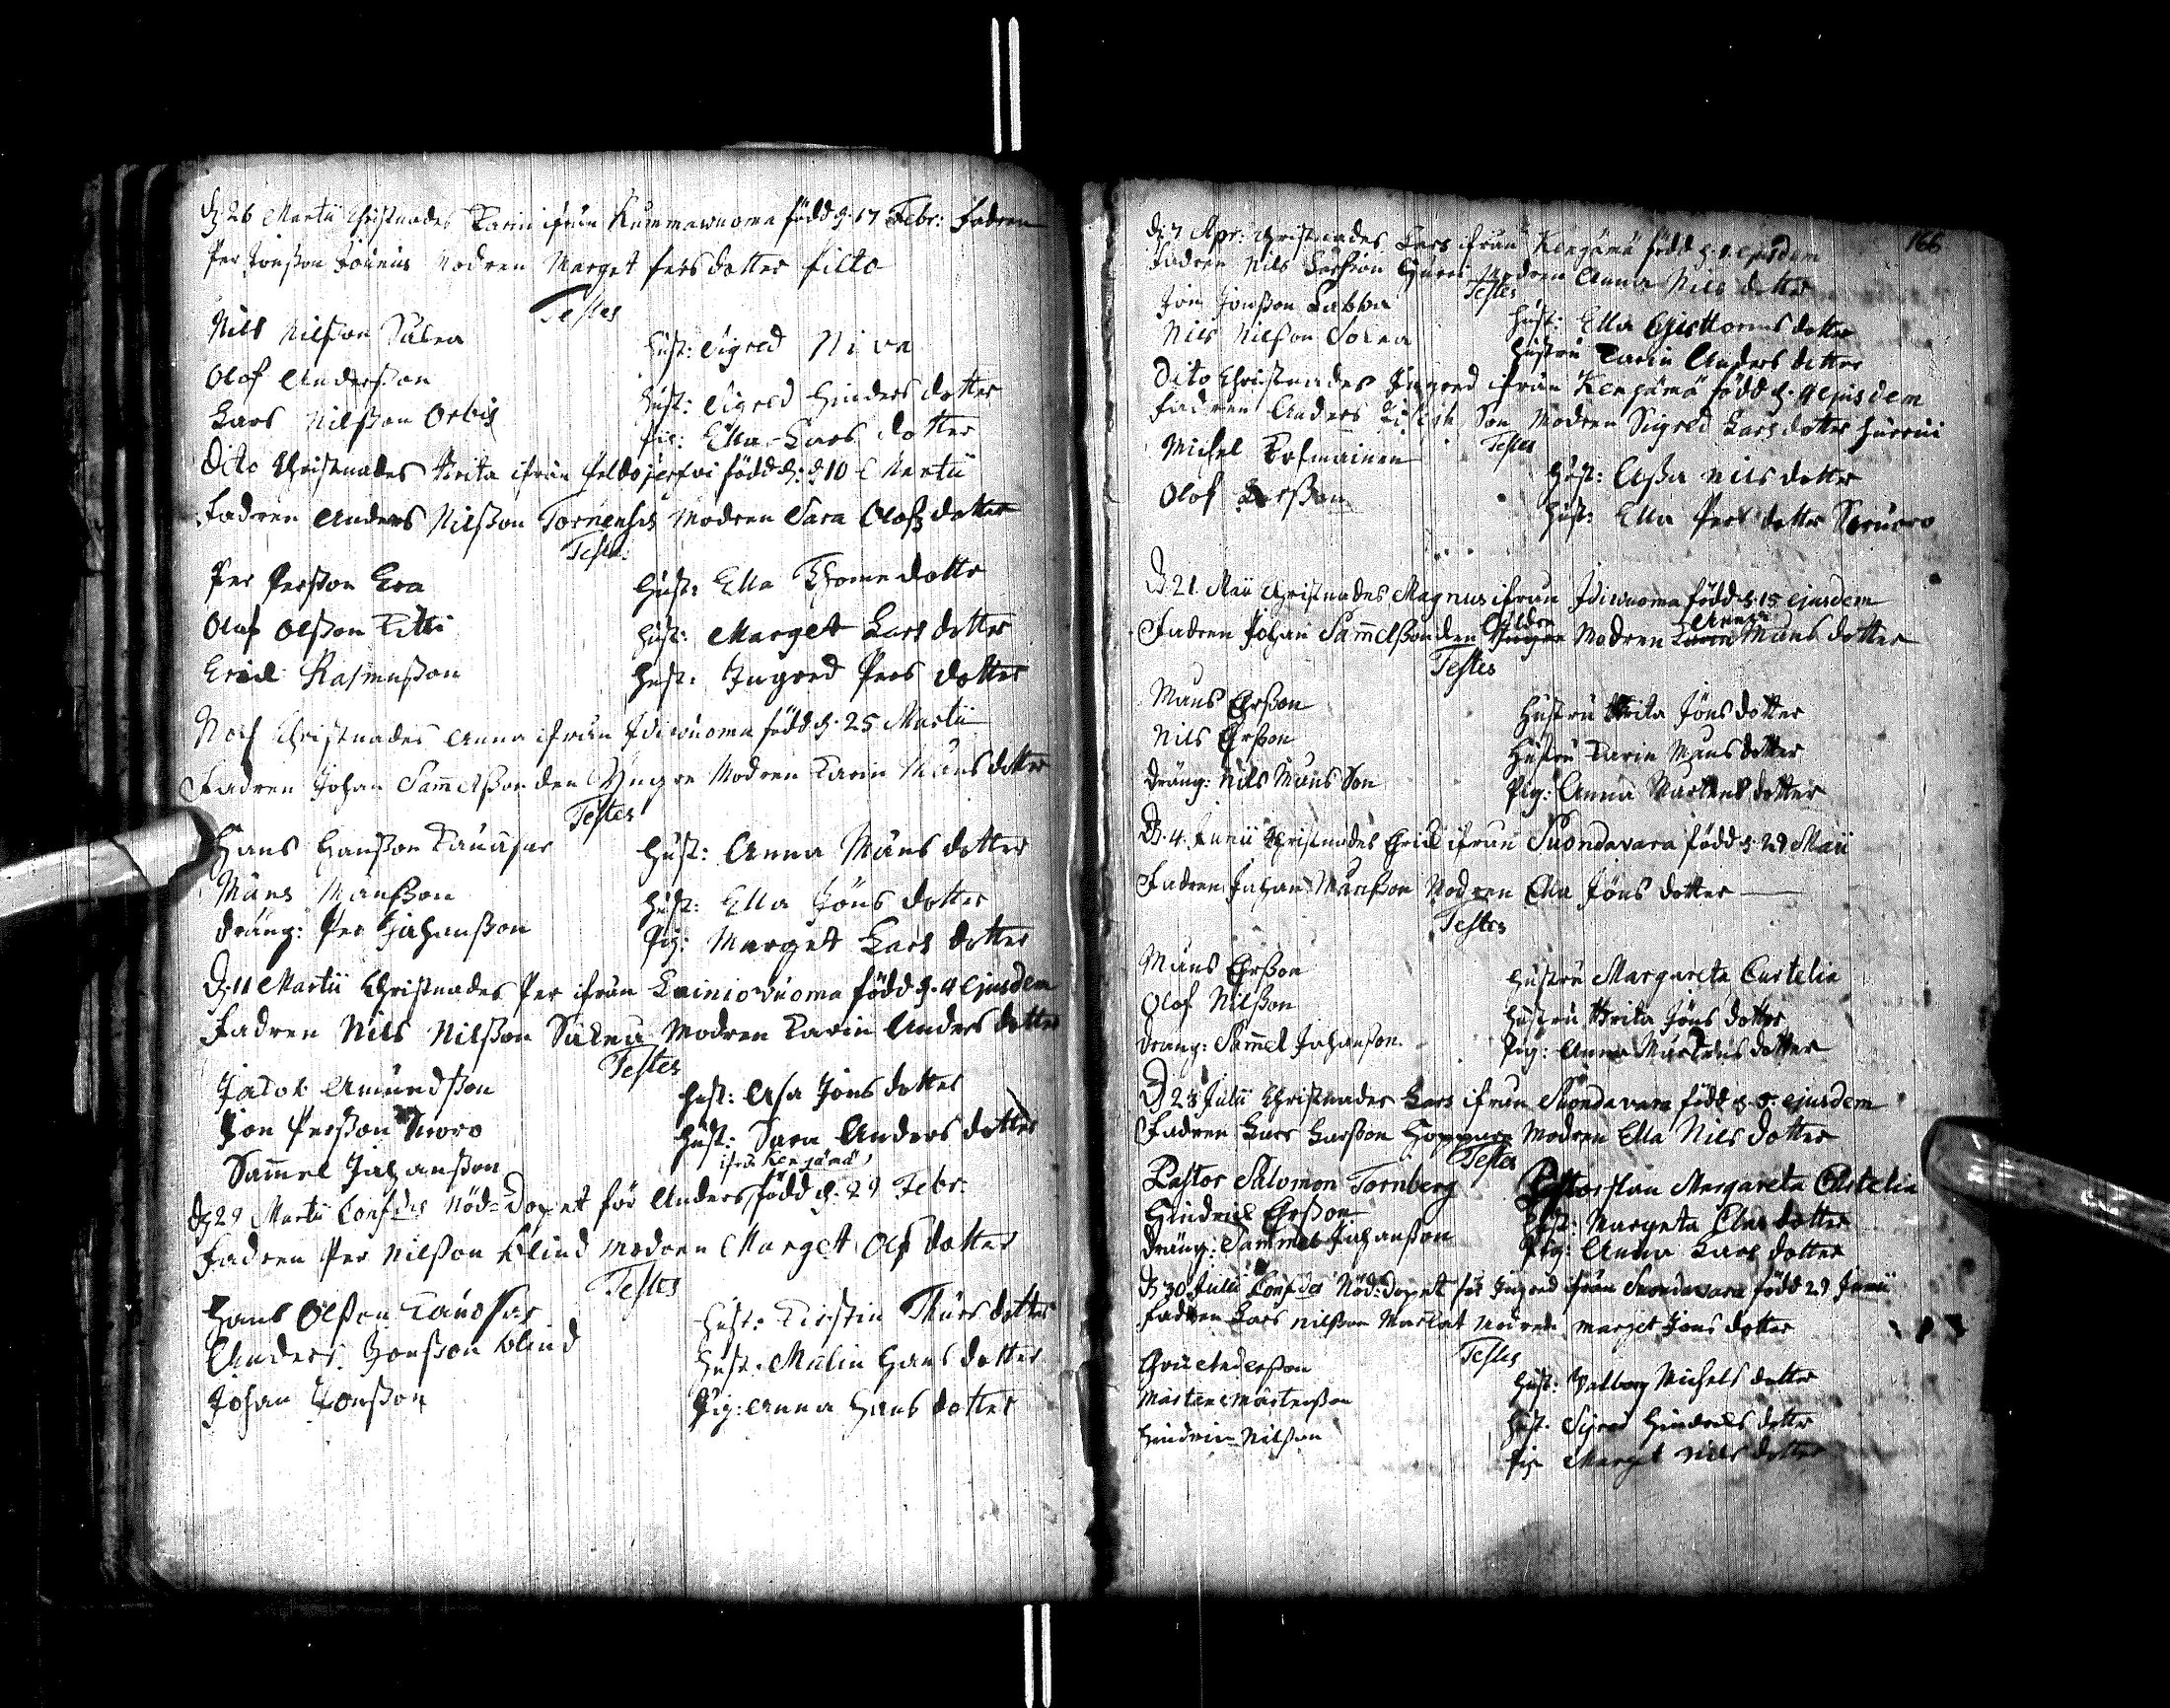 d. 26 Martii Christnades Karin ifrån Rummawuoma född d. 17 Febr: Fadren
Per Jönßon Modren Marget Persdotter Pilto
Testes
Nils Nilßon Hust: Sigred Niva
Olof Anderßon Hust: Sigred Hinders dotter
Lars Nilßon Orbis Pig: Ella Lars dotter
Dito Christnades Brita ifrån Peldojerfvi född d: 10 Martii
Fadren Anders Nilßon Tornensis Modren Sara Olofs dotter
Testes
Per Perßon Era Hust: Ella Thome dotter
Olof Olßon Kitti Hust: Marget Lars dotter
Erick Rasmußon Hust: Ingred Pers dotter
Noch Christnades Anna ifrån Idiwuoma född d. 25 Martii
Fadren Johan Sam̄elßon den Yngre Modren Karin Måns dotter
Testes
Hans Hanßon Hust: Anna Måns dotter
Måns Månßon Hust: Ella Jöns dotter
Dräng: Per Johanßon Pig: Marget Lars dotter
D. 11 Martii Christnades Per ifrån Lainiovuoma född d. 4 Ejusdem
Fadren Nils Nilßon Modren Karin Anders dotter
Testes
Jacob Amundßon Hust: Asa Jöns dotter
Jon Perßon Hust: Sara Anders dotter
Sam̄el Johanßon
ifrån Kengämä
d. 29 Martii Conf des Nöd=Dopet för Anders född d. 29 Febr.
Fadren Per Nilßon Blind Modren Marget Olfs dotter
Testes
Hans Olßon Hust: Kirstin Thurs dotter
Anders Jonßon Blind Hust: Malin Hans dotter
Johan Jonßon Pig: Anna Hans dotter
166
D. 7 Apr: Christnades Lars ifrån Kengämä född d. 1 ejusdem
Fadren Nils Larßon Hurri Modren Anna Nils dotter
Testes
Jon Jonßon Labba Hust: Ella dotter
Nils Nilßon Hustru Karin Anders dotter
Dito Christnades Ingred ifrån Kengämä född d. 4 ejusdem
Fadren Anders Son Modren Sigred Lars dotter Hurri
Testes
Michel Hust: Aßa Nils dotter
Olof Larßon Hust: Ella Pers dotter
D. 21 Maii Christnades Magnus ifrån Idiwuoma född d. 15 ejusdem
Äldre Anna
Fadren Johan Sam̄elßon den Yngre Modren Karin Måns dotter
Testes
Måns Erßon Hustru Brita Jöns dotter
Nils Erßon Hustru Karin Måns dotter
Dräng: Nils Måns Son Pig: Anna Mårtens dotter
D. 4 Junii Christnades Erick ifrån Suondavara född d. 29 Maii
Fadren Johan Månßon Modren Ella Jöns dotter
Testes
Måns Erßon Hustru Margareta Curtelia
Olof Nilßon Hustru Brita Jöns dotter
Dräng: Sam̄el Johanßon Pig: Anna Mårtens dotter
D. 28 Julii Christnades Lars ifrån Suondavara född d. 5. ejusdem
Fadren Lars Larßon Modren Ella Nils dotter
Testes
Pastor Salomon Tornberg Pastorskan Margareta Curtelia
Hindrick Erßon Hust: Margeta dotter
Dräng: Sammel Johanßon Pig: Anna Lars dotter
D. 30 Julii Conf des Nöd=Dopet för Ingred ifrån Suondavara född 29 Junii
Fadren Lars Nilßon Modren Marget Jöns dotter
Testes
Erik Anderßon Hust: Valborg Michels dotter
Mårten Mårtenßon Hust: Sigred Hindricks dotter
Hindrick Nilßon Pig: Marget Nils dotter